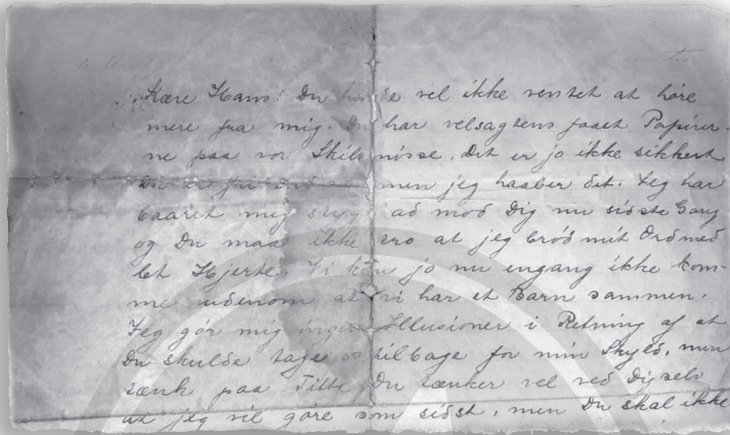 Kære Hans! Du havde vel ikke ventet at høre
mere fra mig. Du har velsagtens faaet Papirer-
ne paa vor Skilsmisse. Det er jo ikke sikkert
men jeg haaber det. Jeg har
baaret mig stygt ad mod Dig nu sidste Gang
og Du maa ikke tro at jeg bród mit Ord med
let Hjerte. Vi kan jo nu engang ikke kom-
me udenom at vi har et Barn sammen.
Jeg gór mig ingen Illusioner i Retning af at
Du skulde tage os tilbage for min Skyld, men
tænk paa Titte. Du tænker vel ved Dig selv
at jeg vil góre som sidst, men Du skal ikke